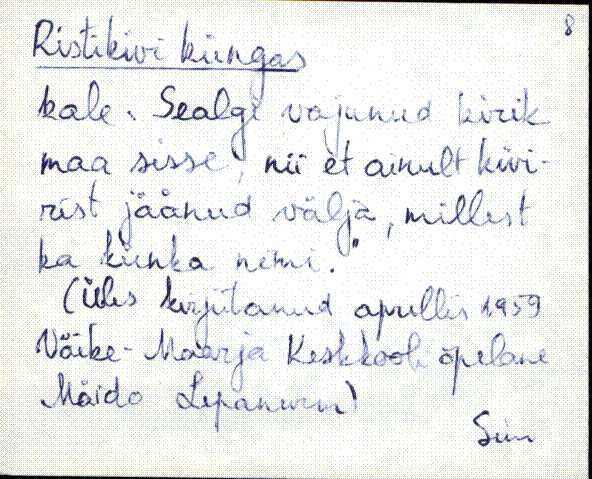 8
Ristikivi küngas
kale. Sealgi vajunud kirik
maa sisse, nii et ainult kivi-
rist jäänud välja, millest
ka künka nimi."
(Üles kirjutanud aprillis 1959
Väike-Maarja Keskkooli õpilane
Maido